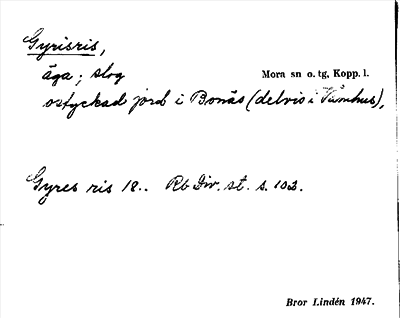 Gyrisris,
äga; slog Mora sn o. tg, Kopp. l.
ostyckad jord i Bonäs (delvis i Våmhus),
Gyres ris 18.. Rb Div. st. s. 103.
Bror Lindén 1947.